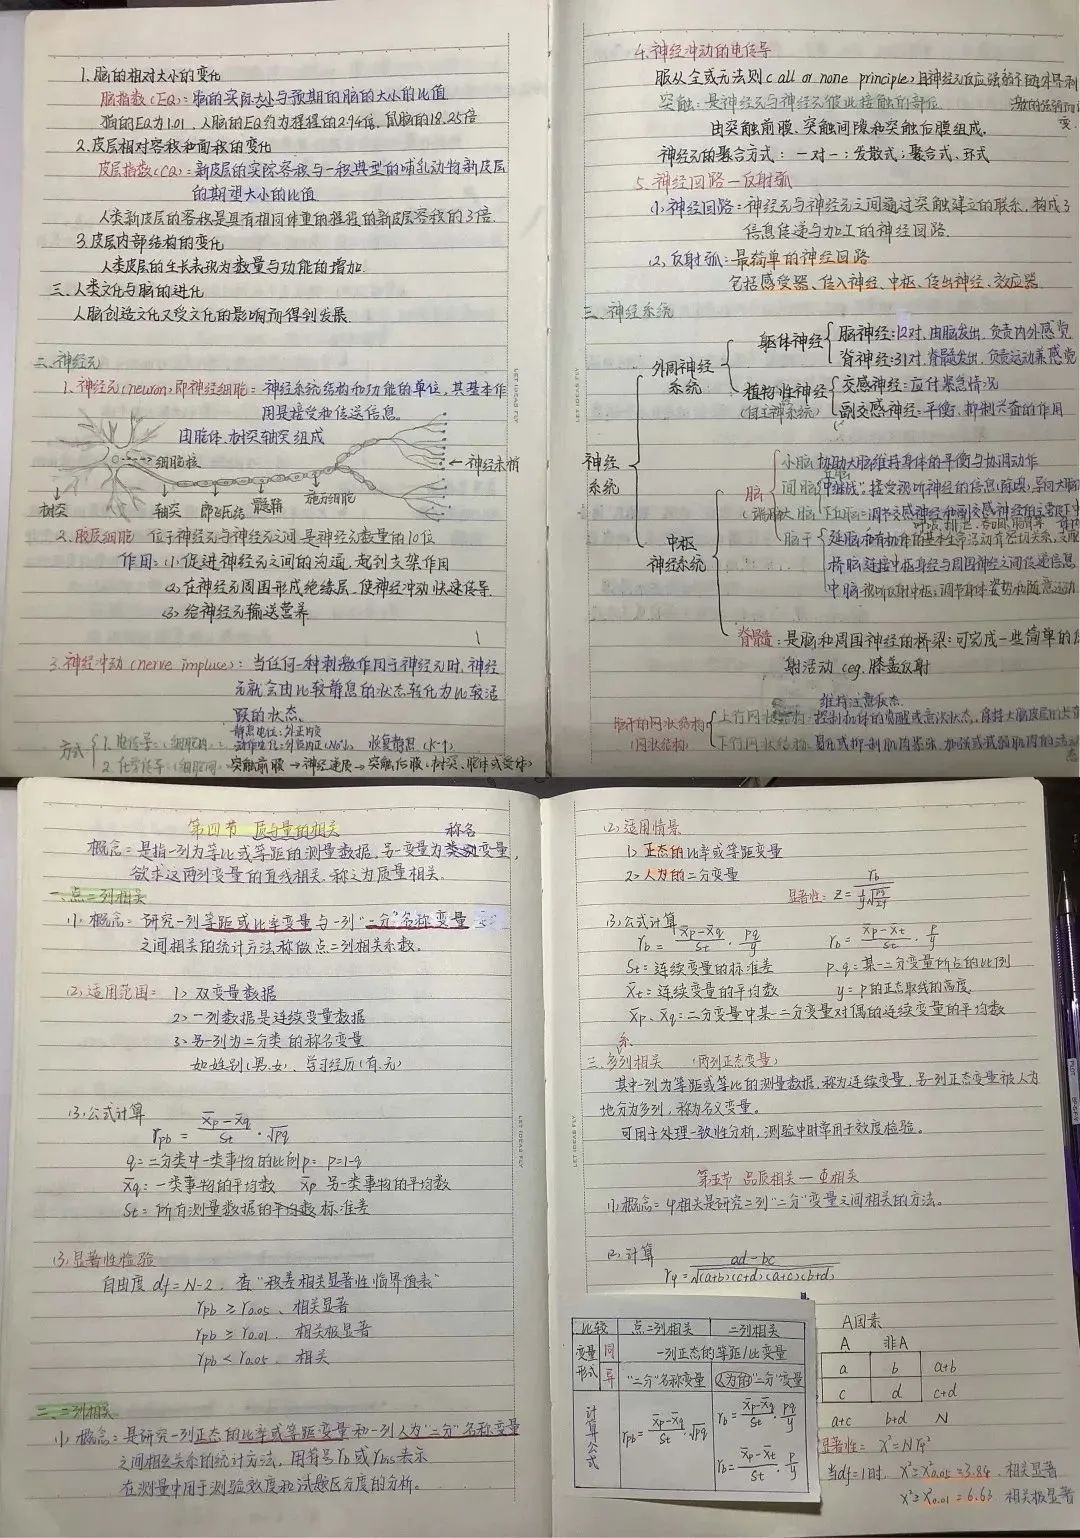 1.脑的相对大小的变化
脑指数(EQ):脑的实际大小与预期的脑的大小的比值
猫的EQ为1.01.人脑的EQ约为猩猩的2.94倍.鼠脑的18.25倍
2.皮层相对容积和面积的变化
皮层指数(CQ):新皮层的实际容积与一般典型的哺乳动物新皮层
的期望大小的比值
人类新皮层的容积是具有相同体重的猩猩的新皮层容积的3倍.
3.皮层内部结构的变化
人类皮层的生长表现为数量与功能的增加.
三.人类文化与脑的进化
人脑创造文化又受文化的影响而得到发展.
二.神经元
1.神经元(neuron)即神经细胞:神经系统结构和功能的单位,其基本作
用是接受和传送信息.
由胞体.树突轴突组成
细胞核
神经末梢
树突
轴突
郎飞氏结
髓鞘
施万细胞
2.胶质细胞 位于神经元与神经元之间是神经元数量的10倍
作用:(1)促进神经元之间的沟通,起到支架作用
(2)在神经元周围形成绝缘层,使神经冲动快速传导.
(3)给神经元输送营养
3.神经冲动(nerve impluse):当任何一种刺激作用于神经元时,神经
元就会由比较静息的状态转化为比较活
跃的状态.
静息电位:外正内负
方式
恢复静息(K+)
2.化学传导:(细胞间)突触前膜→神经递质→突触后膜(树突、胞体或受体)
LET IDEAS FLY
4.神经冲动的电传导
服从全或无法则(all or none principle)
突触:是神经元与神经元彼此接触的部位.
由突触前膜、突触间隙和突触后膜组成.
神经元的聚合方式:一对一;发散式;聚合式、环式
5.神经回路—反射弧
(1)神经回路:神经元与神经元之间通过突触建立的联系,构成了
信息传递与加工的神经回路.
(2)反射弧:最简单的神经回路
包括感受器、传入神经、中枢、传出神经、效应器
三.神经系统
神经系统
外周神经系统
躯体神经
脑神经:12对,由脑发出,负责内外感觉
脊神经:31对.脊髓发出.负责运动兼感觉
植物性神经
交感神经:应付紧急情况
副交感神经:平衡.抑制兴奋的作用
中枢神经系统
脑
小脑 协助大脑维持身体的平衡与协调动作
间脑
脑干
桥脑:连接中枢神经与周围神经之间传递信息
中脑:视听反射中枢;调节身体姿势和随意运动
脊髓:是脑和周围神经的桥梁:可完成一些简单的反
射活动(eg.膝盖反射
脑干的网状结构
(网状结构)
维持注意状态
上行网状结构:控制机体的觉醒或意识状态,保持大脑皮层的
下行网状结构:易化或抑制肌肉紧张,加强或减弱肌肉的活动
LET IDEAS FLY
第四节 质与量的相关
称名
概念:是指一列为等比或等距的测量数据,另一变量为类别变量,
欲求这两列变量的直线相关,称之为质量相关.
一.点二列相关
(1)概念:研究一列等距或比率变量与一列"二分"名称变量
之间相关的统计方法称做点二列相关系数.
(2)适用范围:1>双变量数据
2>一列数据是连续变量数据
3>另一列为二分类的称名变量
如性别(男.女)、学习经历(有.无)
(3)公式计算
rpb = (X̄p-X̄q)/St · √pq
q=二分类中一类事物的比例p= p=1-q
X̄q:一类事物的平均数 X̄p 另一类事物的平均数
St=所有测量数据的平均数 标准差
(3)显著性检验
自由度 df=N-2,查"积差相关显著性临界值表"
rpb ≥ r0.05、相关显著
rpb ≥ r0.01、相关极显著
rpb < r0.05、相关
二.二列相关
(1)概念:是研究一列正态的比率或等距变量和一列人为"二分"名称变量
之间相互关系的统计方法,用符号rb或rbis表示
在测量中用于测验效度和试题区分度的分析.
LET IDEAS FLY
(2)适用情景
1>正态的比率或等距变量
2>人为的二分变量
显著性:
(3)公式计算
rb = (X̄p-X̄q)/St · pq/y
rb = (X̄p-X̄t)/St · p/y
St=连续变量的标准差 p.q=某一二分变量所占的比例
X̄t=连续变量的平均数 y=p的正态曲线的高度
X̄p、X̄q=二分变量中某一二分变量对偶的连续变量的平均数
系.
三.多列相关 (两列正态变量)
其中一列为等距或等比的测量数据,称为连续变量,另一列正态变量被人为
地分为多列,称为名义变量.
可用于处理一致性分析,测验中时常用于效度检验.
第五节 品质相关—Φ相关
(1)概念=Φ相关是研究二列"二分"变量之间相关的方法.
(2)计算
rφ= (ad-bc)/√(a+b)(c+d)(a+c)(b+d)
LET IDEAS FLY
比较 点二列相关 二列相关
变量形式 同 一列正态的等距/比变量
异 "二分"名称变量 人为的"二分"变量
计算公式
rpb= (X̄p-X̄q)/St · √pq
rb= (X̄p-X̄q)/St · pq/y
rb= (X̄p-X̄t)/St · p/y
A因素
A 非A
a b a+b
c d c+d
a+c b+d N
显著性:
当df=1时, X²≥X²0.05=3.84.相关显著
X²≥X²0.01=6.63 相关极显著